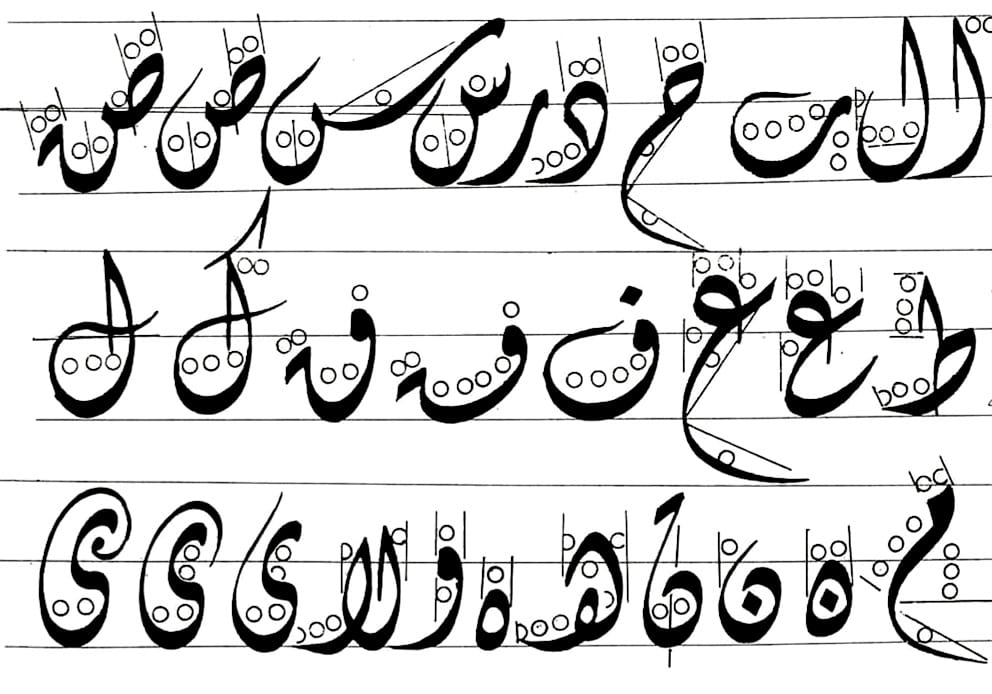 ا ل ب ح د ر س س ص ص
ط ع ع ف ف ف ك ك
م ن ن ن ه ه و لا ى ى ى